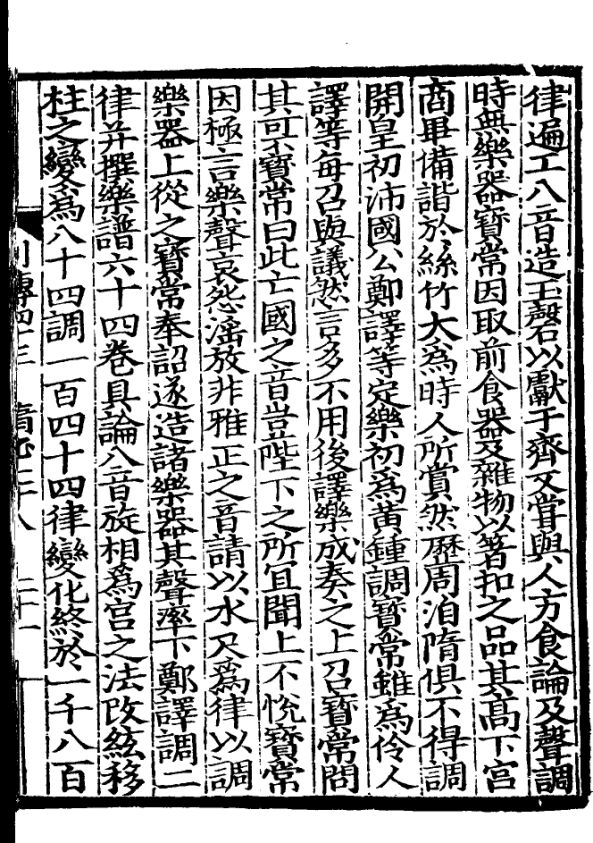 律遍工八音造玉磬以獻于齊又嘗與人方食論及聲調
時無樂器寳常因取前食器及雜物以箸扣之品其髙下宫
商畢備諧於絲竹大爲時人所賞然歷周洎隋俱不得調
開皇初沛國公鄭譯等定樂初爲黃鍾調寳常雖爲伶人
譯等每召與議然言多不用後譯樂成奏之上召寳常問
其可不寳常曰此亡國之音豈陛下之所冝聞上不悅寳常
因極言樂聲哀怨滛放非雅正之音請以水尺爲律以調
樂器上從之寳常奉詔遂造諸樂器其聲率下鄭譯調二
律并撰樂譜六十四卷具論八音旋相爲宫之法改絃移
柱之變爲八十四調一百四十四律變化終於一千八百
列傳四十三 隋書七十八 二十一